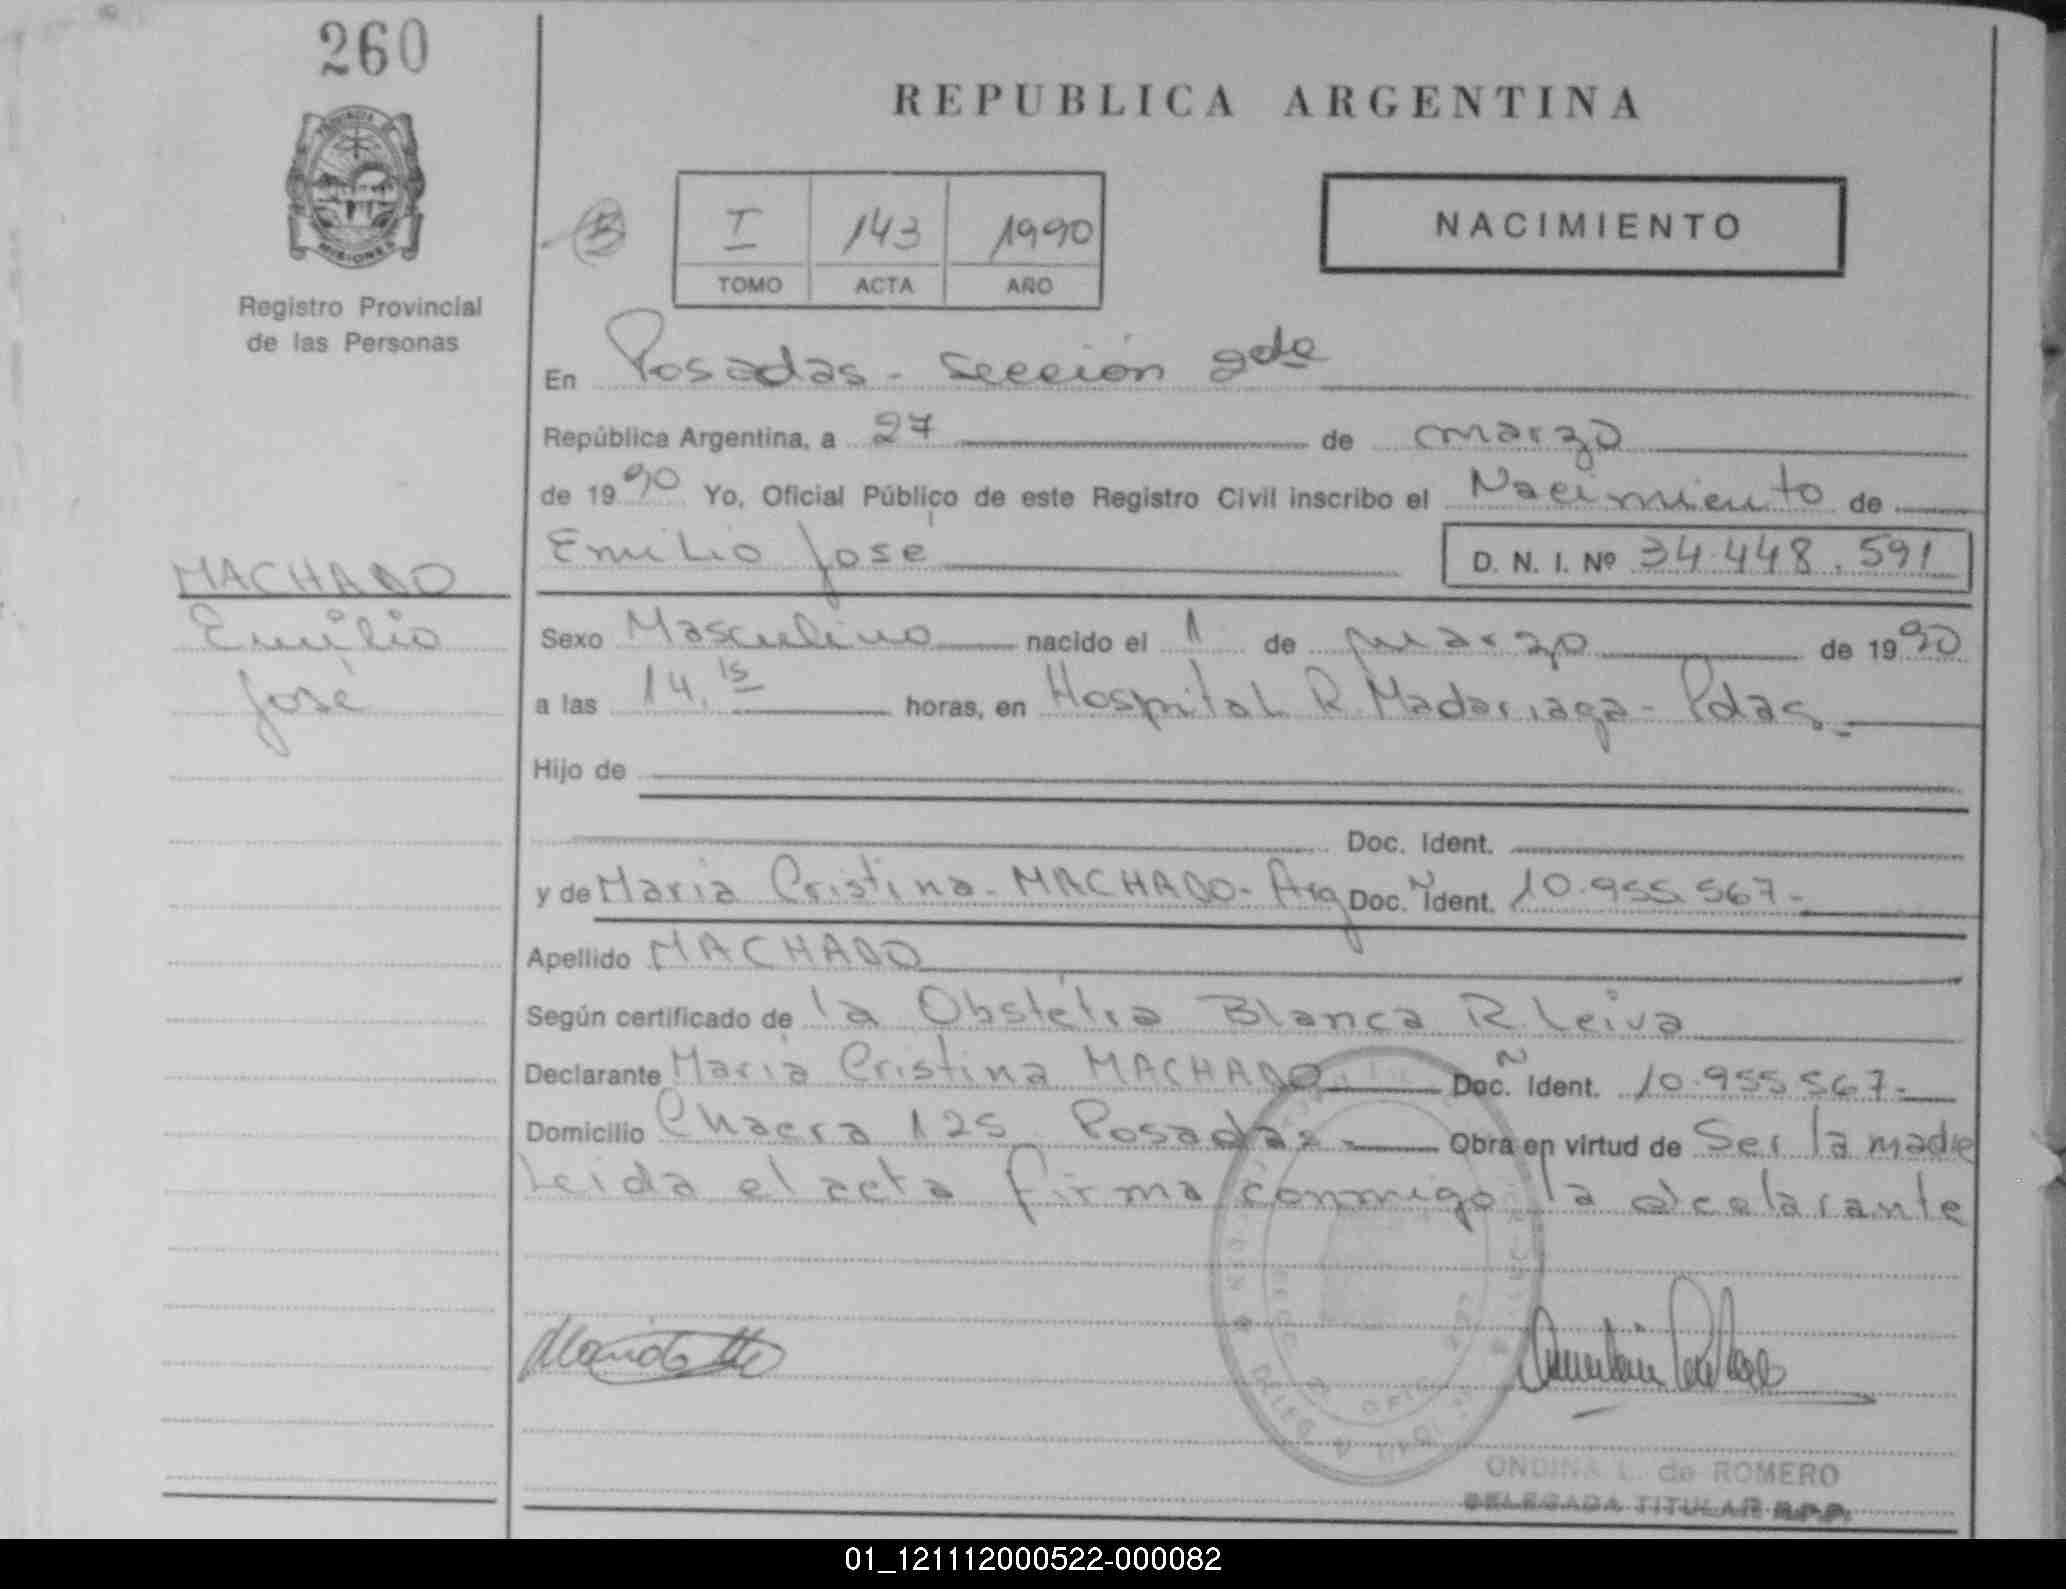 260
PROVINCIA
MISIONES
Registro Provincial
de las Personas
REPUBLICA ARGENTINA
B
I 143 1990
TOMO ACTA AÑO
NACIMIENTO
En Posadas - Sección 2da
República Argentina, a 27 de marzo
de 1990 Yo, Oficial Público de este Registro Civil inscribo el Nacimiento de
Emilio José
D. N. I. Nº 34.448.591
MACHADO
Emilio
José
Sexo Masculino nacido el 1 de marzo de 1990
a las 14.15 horas, en Hospital R. Madariaga - Pdas.
Hijo de
Doc. Ident.
y de Maria Cristina - MACHADO - Arg Doc. Ident. 10.955.567-
Apellido MACHADO
Según certificado de la Obstétra Blanca R. Leiva
Declarante María Cristina MACHADO Doc. Ident. 10.955.567-
Domicilio Chacra 125 Posadas - Obra en virtud de Ser la madre
Leida el acta firma conmigo la declarante
ONDINA L. de ROMERO
DELEGADA TITULAR R.P.P.
01_121112000522-000082